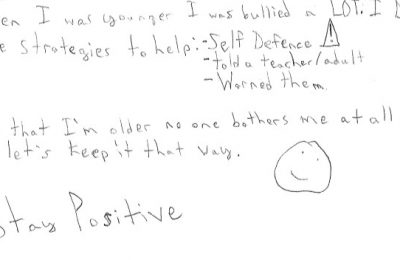 en I was younger I was bullied a LOT. I
e strategies to help:-Self Defence
-told a teacher/adult
-Warned them.
that I'm older no one bothers me at all
let's keep it that way.
Stay Positive